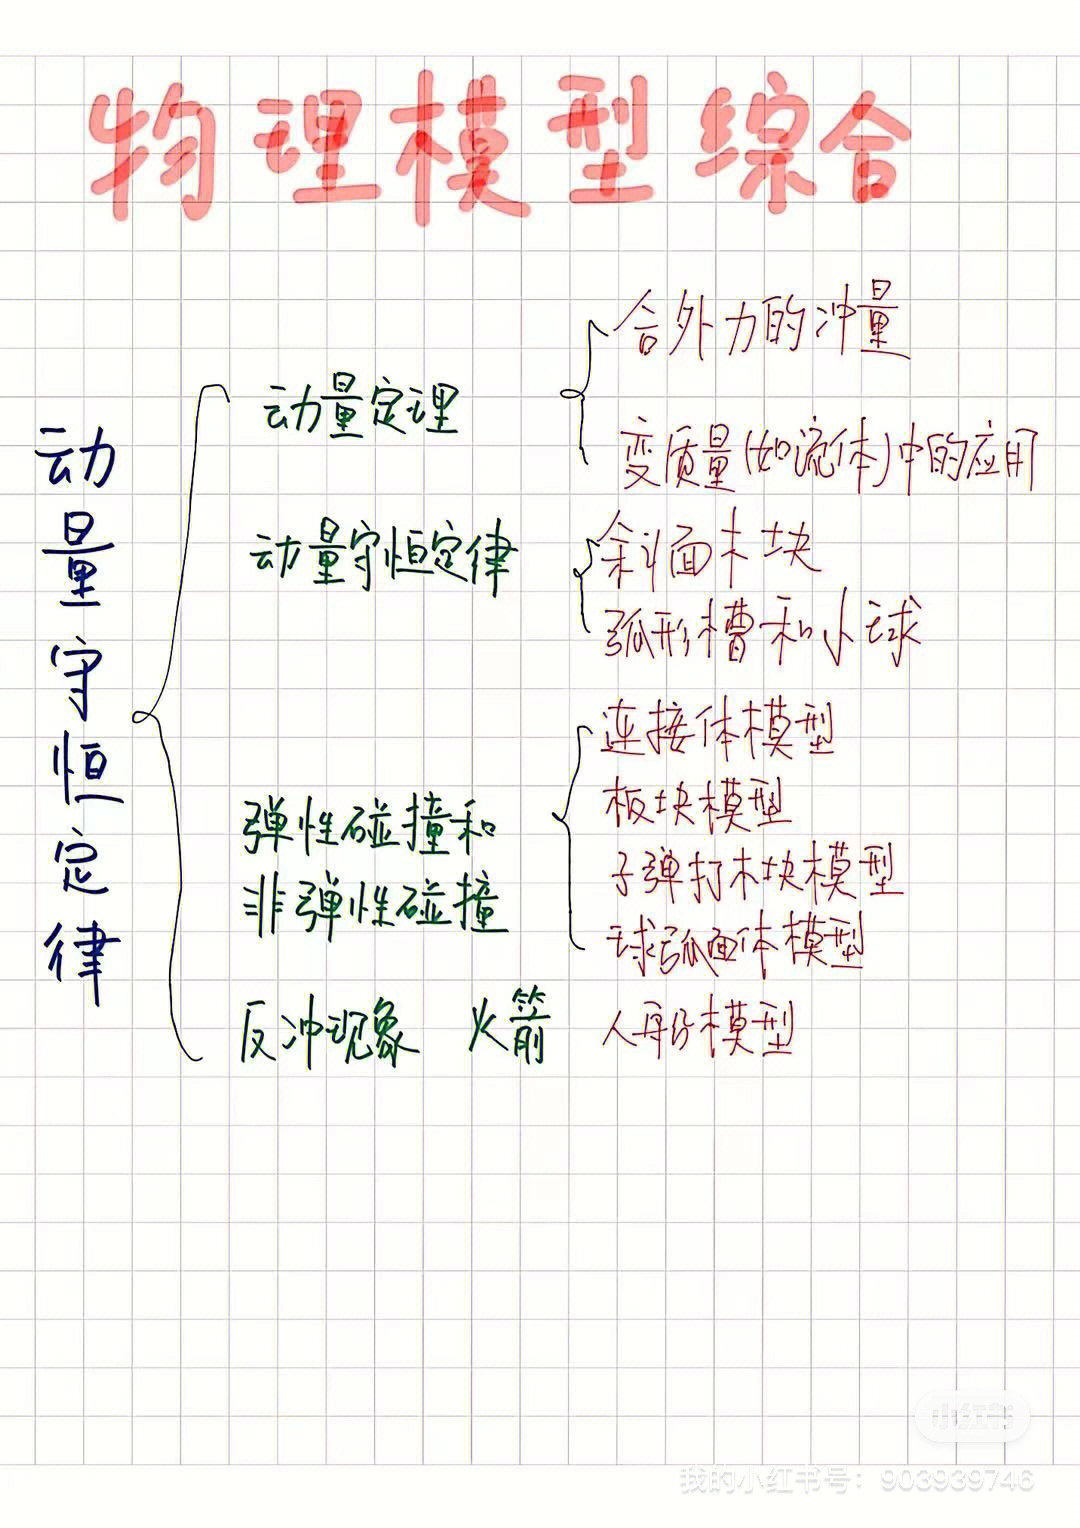 物理模型综合
动量守恒定律
动量定理
合外力的冲量
变质量(如流体)中的应用
动量守恒定律
斜面木块
弧形槽和小球
弹性碰撞和
非弹性碰撞
连接体模型
板块模型
子弹打木块模型
球弧面体模型
反冲现象 火箭
人船模型
小红书
我的小红书号：903939746